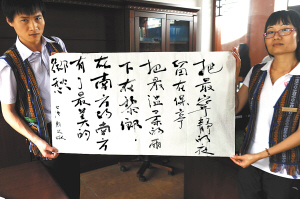 把最寧靜的夜
留在保亭
把最温柔的雨
下在黎鄉，
在南方的南方
有了最美的
鄉愁